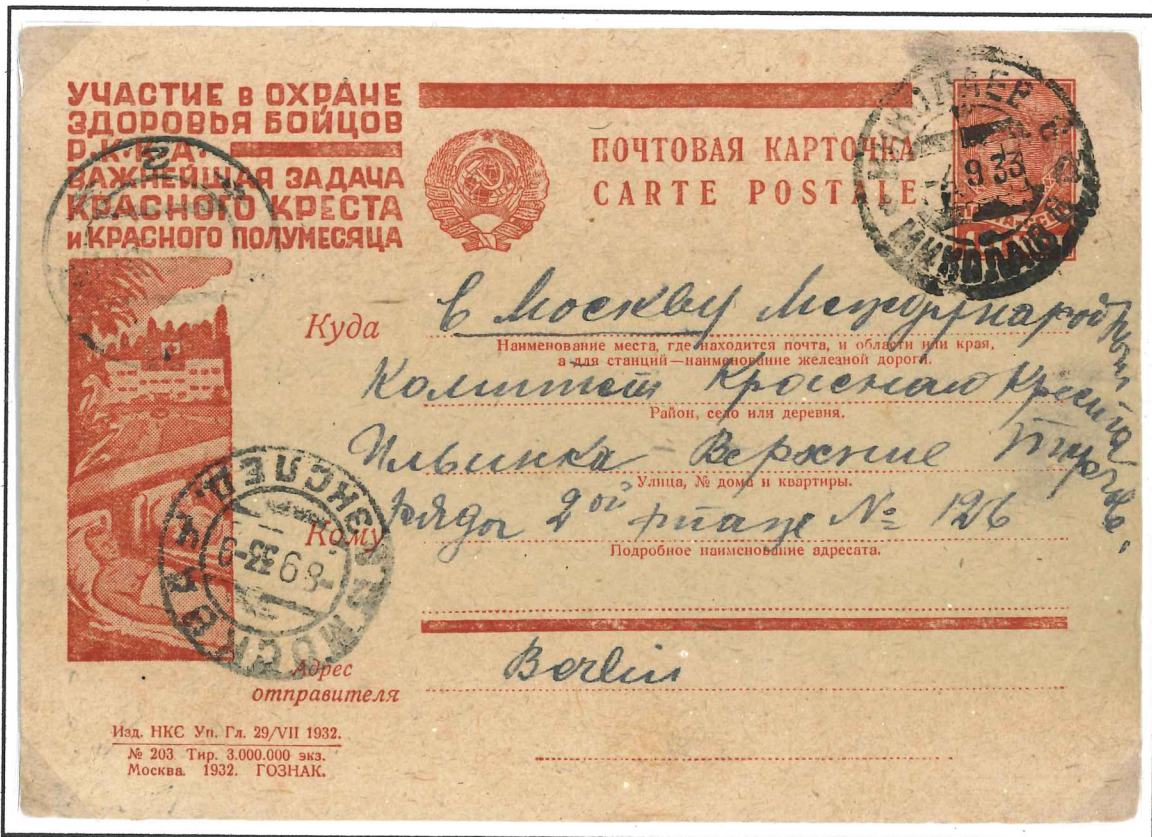 УЧАСТИЕ в ОХРАНЕ
ЗДОРОВЬЯ БОЙЦОВ
Р.К.К.А.
ВАЖНЕЙШАЯ ЗАДАЧА
КРАСНОГО КРЕСТА
и КРАСНОГО ПОЛУМЕСЯЦА
ПОЧТОВАЯ КАРТОЧКА
CARTE POSTALE
НИКОЛАЕВ
9 33
Куда
в Москву Международный
Наименование места, где находится почта, и области или края,
а для станций—наименование железной дороги.
Комитет Красного Креста
Район, село или деревня.
Ильинка Верхние Торгов.
Улица, № дома и квартиры.
Кому
Ряды 2ой этаже № 126
Подробное наименование адресата.
МОСКВА
ЭКСПЕД.
-8 9 33-9
Berlin
Адрес
отправителя
Изд. НКС Уп. Гл. 29/VII 1932.
№ 203 Тир. 3.000.000 экз.
Москва. 1932. ГОЗНАК.